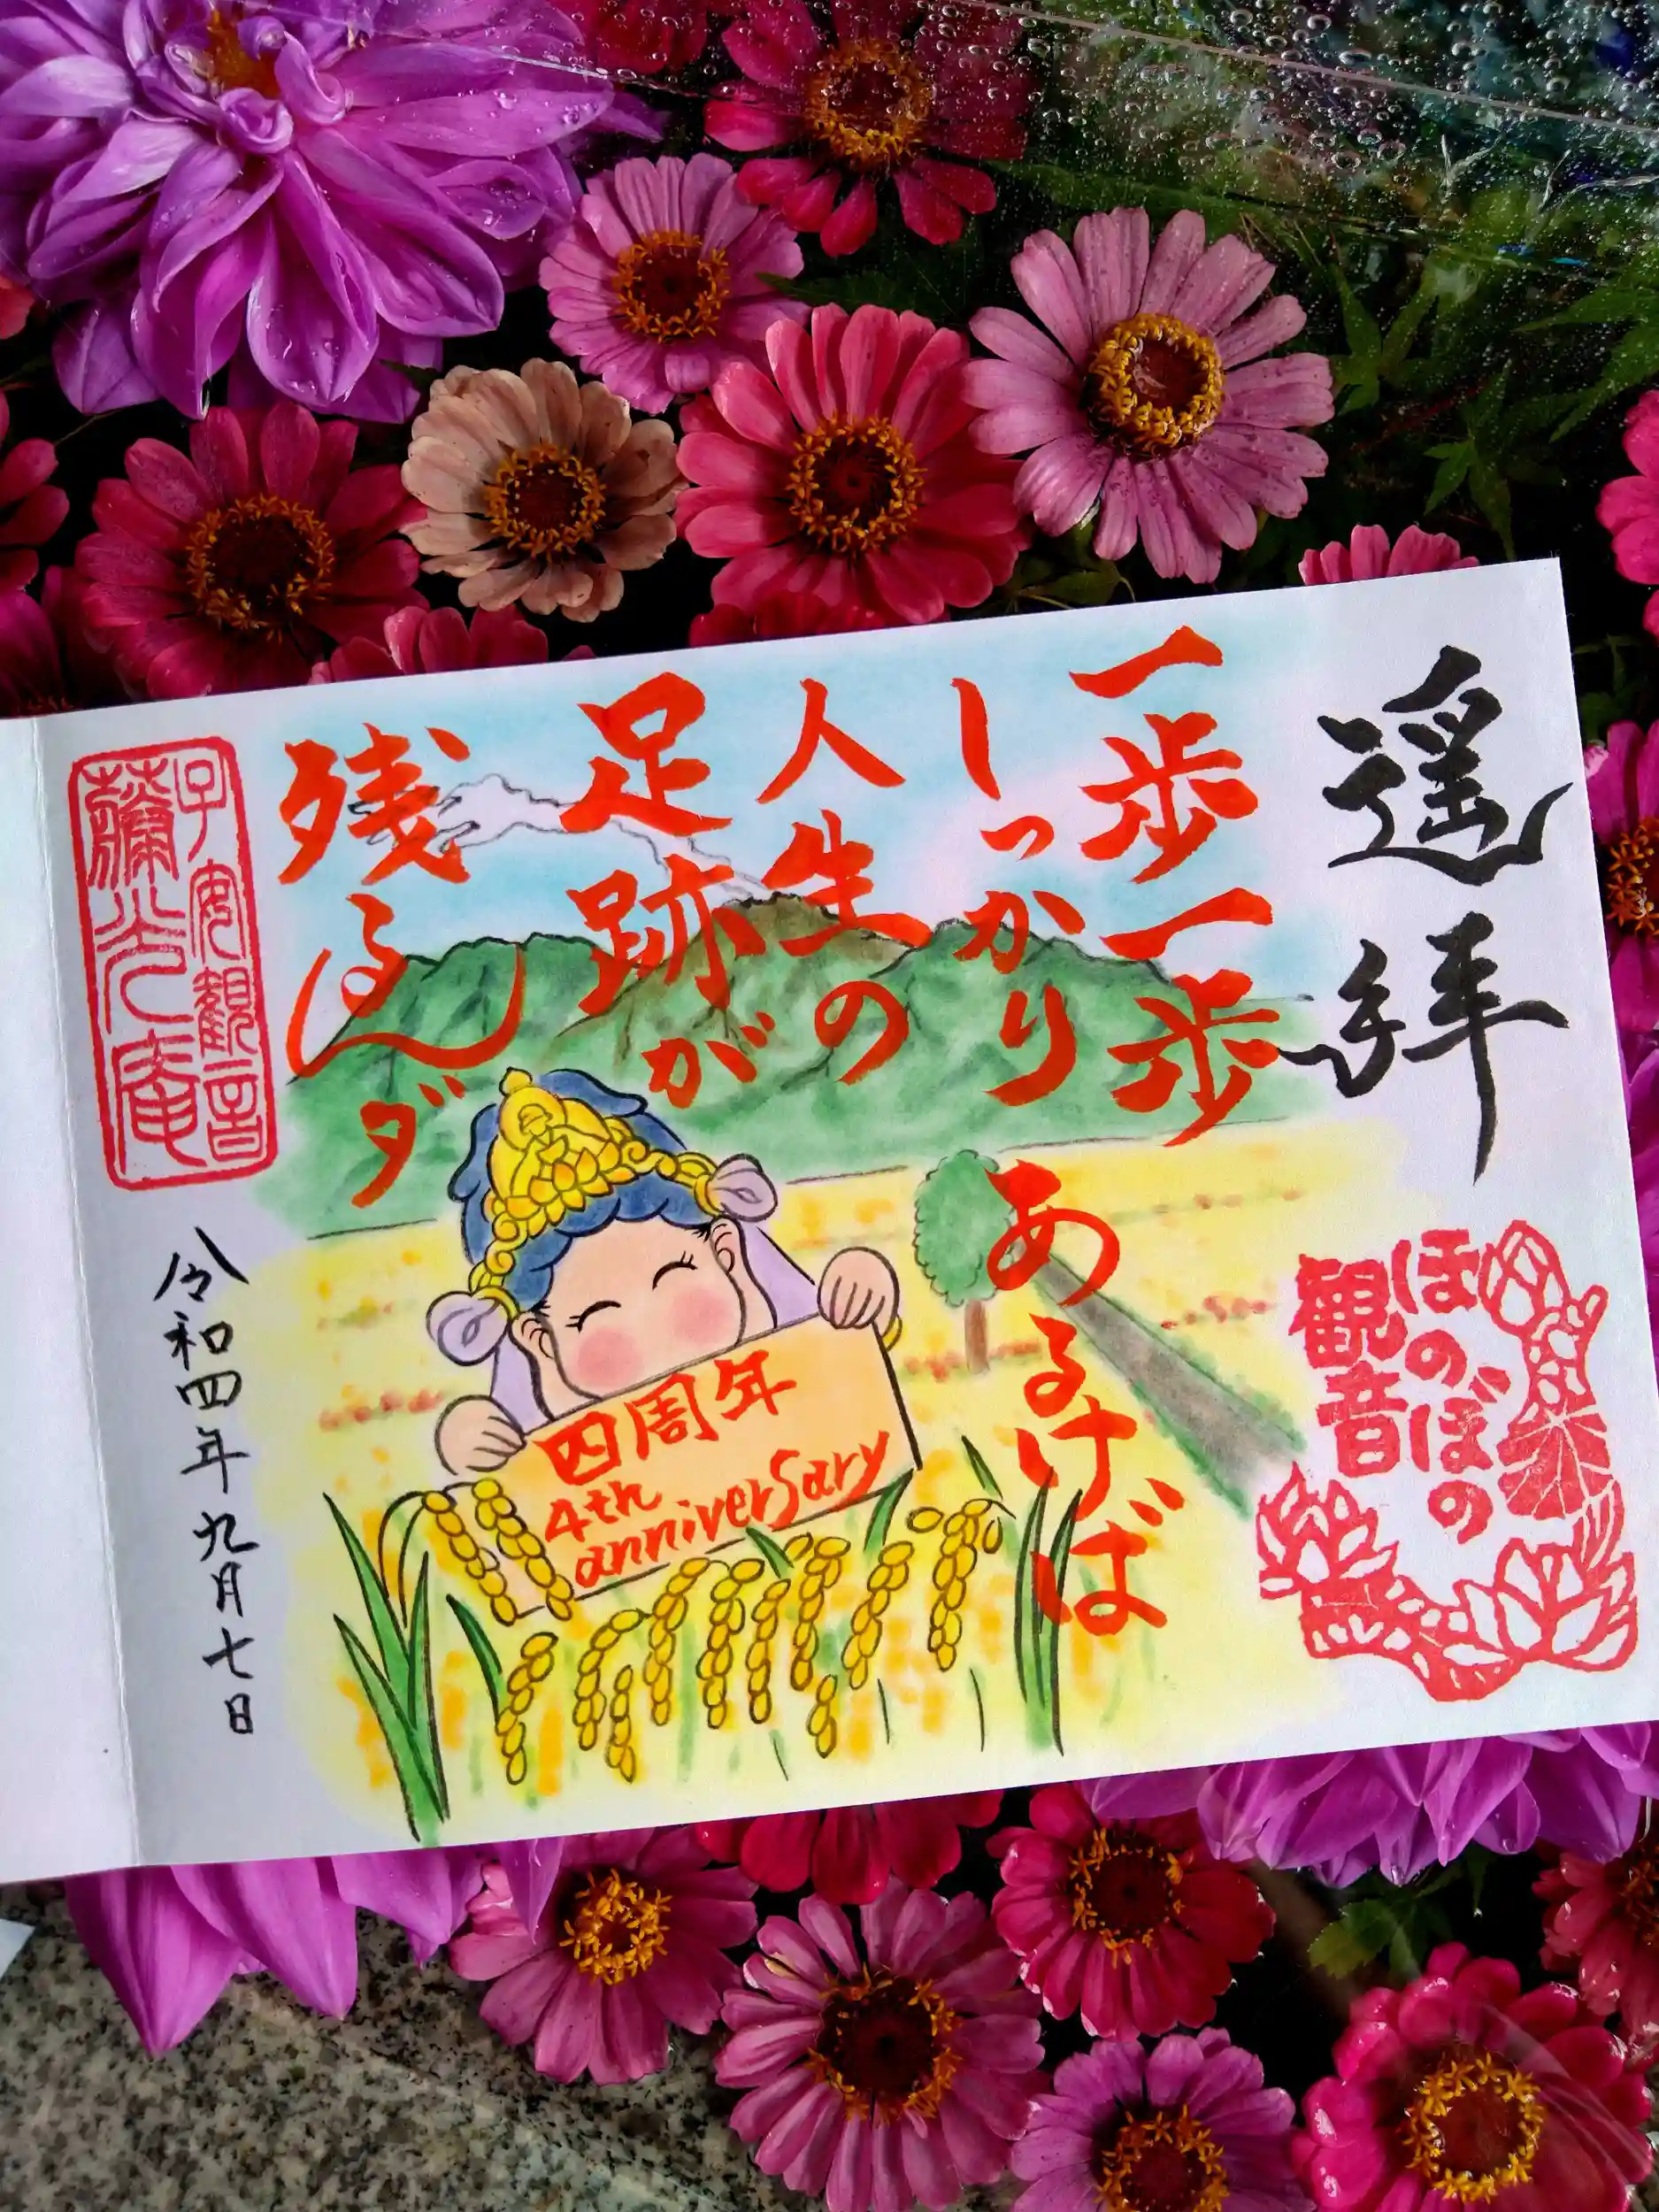 遥拝
ほのぼの
観音
一歩一歩
しっかり
あるけば
人生の
足跡が
残るんダ
四周年
4th
anniversary
子安観音
薬光庵
令和四年九月七日